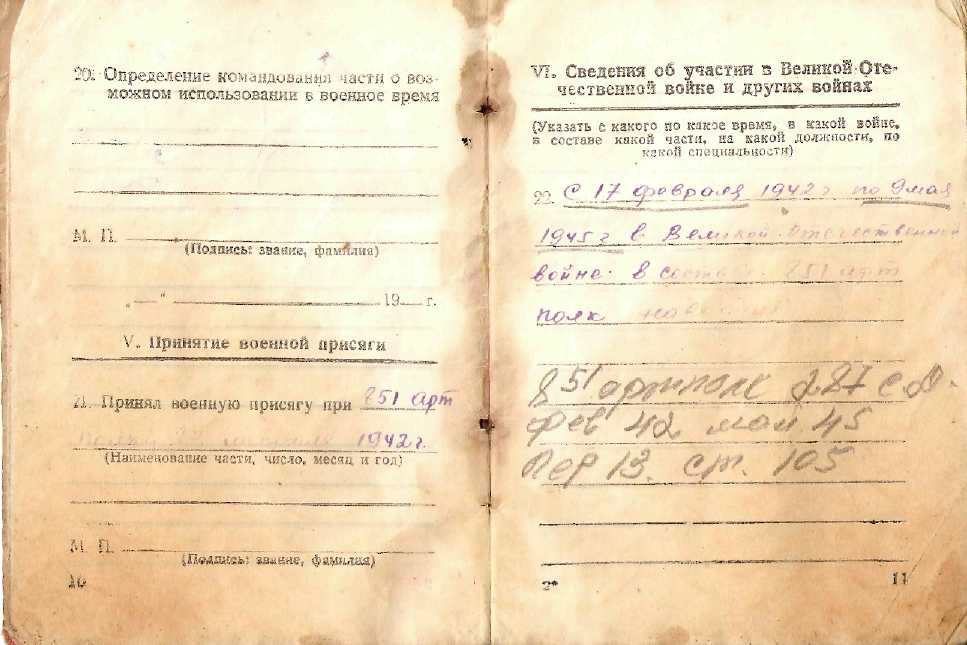 20. Определение командования части о воз-
можном использовании в военное время
М. П.
(Подпись: звание, фамилия)
„—“ 19— г.
V. Принятие военной присяги
21. Принял военную присягу при 851 арт
полку 1942 г.
(Наименование части, число, месяц и год)
М. П.
(Подпись: звание, фамилия)
10
VI. Сведения об участии в Великой Оте-
чественной войне и других войнах
(Указать с какого по какое время, в какой войне,
в составе какой части, на какой должности, по
какой специальности)
22. С 17 февраля 1942 г по 9 мая
1945 г в Великой Отечественной
война в составе 851 арт
полк
851 артполк 287 с д.
фев 42 май 45
Пер 13. ст. 105
2*
11